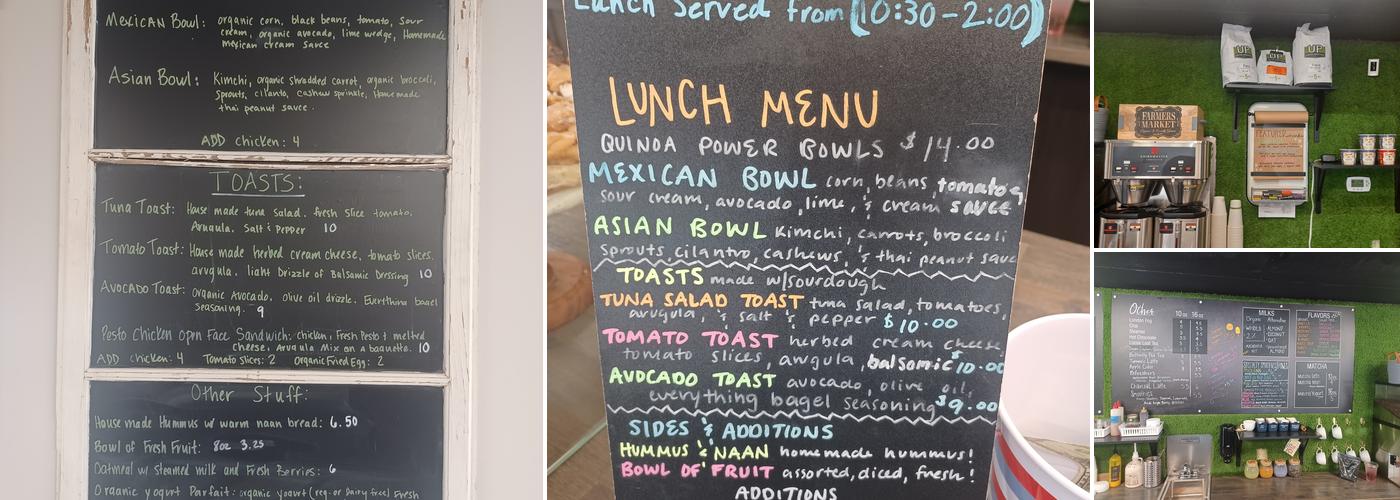 Mexican Bowl: organic corn, black beans, tomato, sour
cream, organic avocado, lime wedge, Homemade
mexican cream sauce
Asian Bowl: Kimchi, organic shradded carrot, organic broccoli,
Sprouts, cilanto, cashew sprinkle, Homemade
thai peanut sauce.
ADD chicken: 4
TOASTS:
Tuna Toast: House made tuna salad. fresh slice tomato,
Arugula. Salt & Pepper 10
Tomato Toast: House made herbed cream cheese, tomato slices,
arugula, light Drizzle of Balsamic Dressing 10
AVOCADO Toast: Organic Avocado, olive oil drizzle. Everything bagel
Seasoning. 9
Pesto Chicken open Face Sandwich: chicken, Fresh Pesto & melted
cheese, Arugula Mix on a baguette. 10
ADD chicken: 4 Tomato Slices: 2 Organic Fried Egg: 2
Other Stuff:
House made Hummus w/ warm naan bread: 6.50
Bowl of Fresh Fruit: 8oz 3.25
Oatmeal w/ steamed milk and Fresh Berries: 6
Organic yogurt Parfait: organic yogurt (reg. or Dairy free) Fresh
Lunch Served from (10:30-2:00)
LUNCH MENU
QUINOA POWER BOWLS $14.00
MEXICAN BOWL corn, beans, tomatoes,
sour cream, avocado, lime, & cream sauce
ASIAN BOWL Kimchi, carrots, broccoli
Sprouts, cilantro, cashews, & thai peanut sauce
TOASTS made w/sourdough
TUNA SALAD TOAST tuna salad, tomatoes,
arugula, & salt & pepper $10.00
TOMATO TOAST herbed cream cheese
tomato slices, arugula, balsamic $10.00
AVOCADO TOAST avocado, olive oil,
everything bagel seasoning $9.00
SIDES & ADDITIONS
HUMMUS & NAAN homemade hummus!
BOWL OF FRUIT assorted, diced, fresh!
ADDITIONS
UP
UP
UP
FARMERS
MARKET
FEATURED
10 oz 16 oz
London Fog
Chai
Steamer
Hot Chocolate
MILKS
WHOLE
ALMOND
COCONUT
OAT
FLAVORS
MATCHA
Charcoal Latte
Smoothies